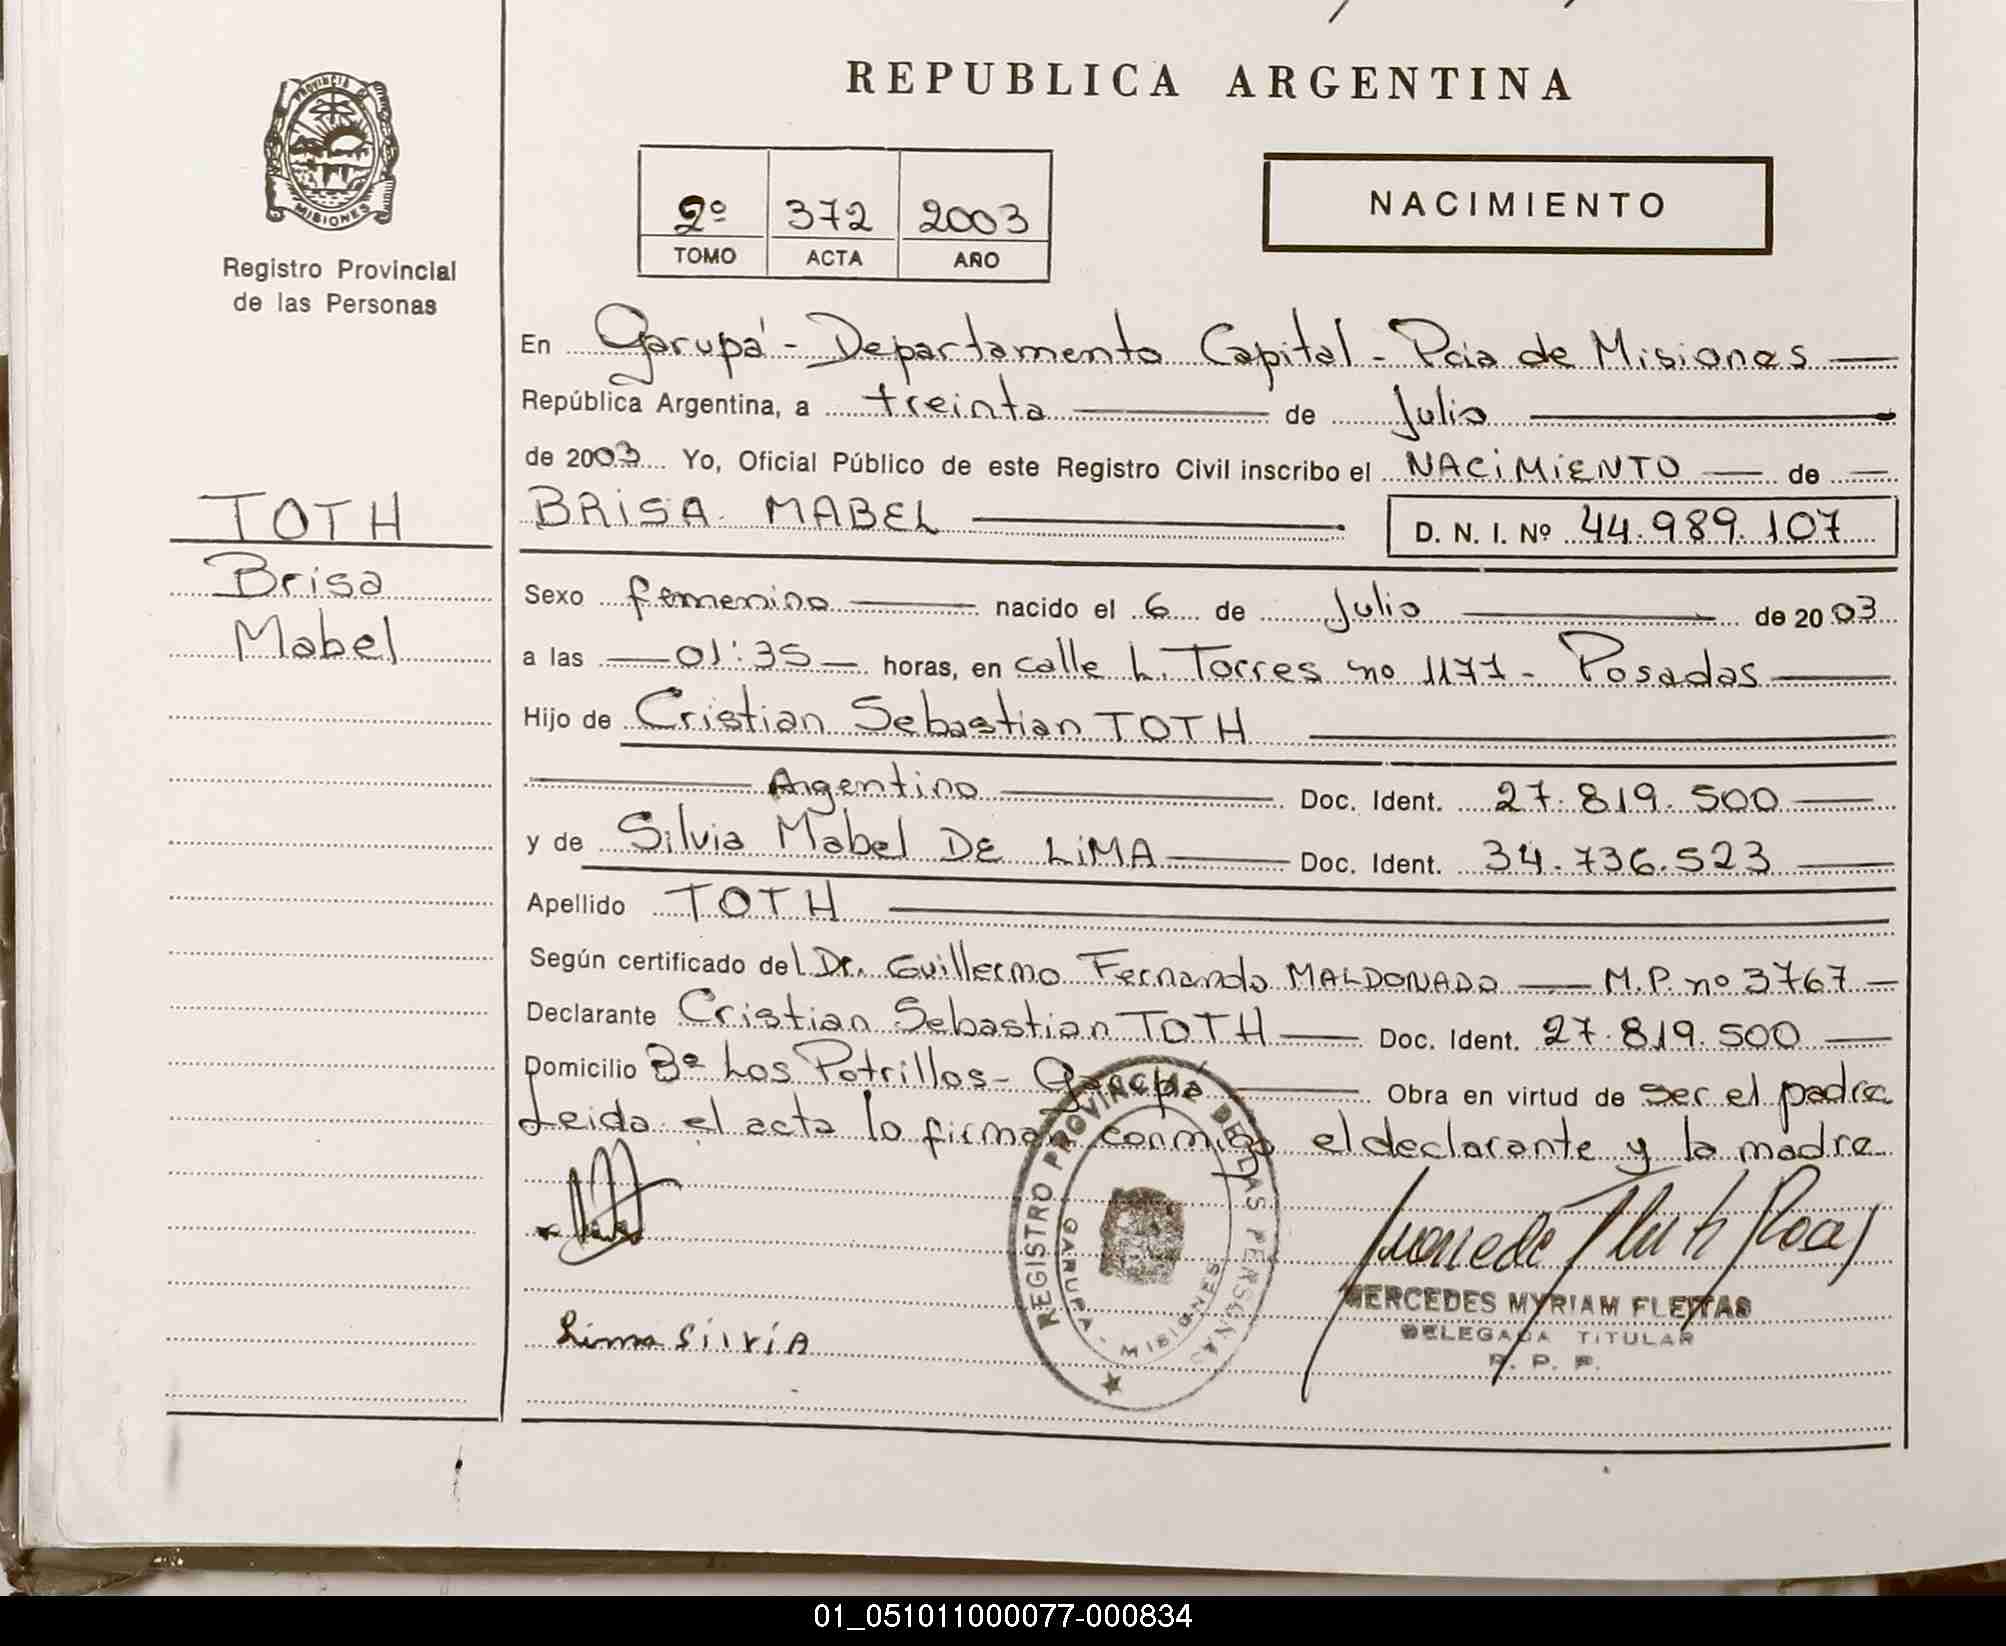 REPUBLICA ARGENTINA
PROVINCIA DE
MISIONES
Registro Provincial
de las Personas
2º 372 2003
TOMO ACTA AÑO
NACIMIENTO
En Garupá - Departamento Capital - Pcia de Misiones
República Argentina, a treinta de Julio
de 2003 Yo, Oficial Público de este Registro Civil inscribo el NACIMIENTO de
BRISA MABEL D. N. I. Nº 44.989.107
TOTH
Brisa
Mabel
Sexo femenino nacido el 6 de Julio de 2003
a las 01:35 horas, en calle L. Torres no 1177 - Posadas
Hijo de Cristian Sebastian TOTH
Argentino Doc. Ident. 27.819.500
y de Silvia Mabel DE LIMA Doc. Ident. 34.736.523
Apellido TOTH
Según certificado del Dr. Guillermo Fernando MALDONADO M.P. nº 3767
Declarante Cristian Sebastian TOTH Doc. Ident. 27.819.500
Domicilio Bº Los Potrillos - Garupá Obra en virtud de ser el padre
Leida el acta lo firman conmigo el declarante y la madre
REGISTRO PROVINCIAL DE LAS PERSONAS
GARUPA - MISIONES
MERCEDES MYRIAM FLEITAS
DELEGADA TITULAR
R. P. P.
Lima Silvia
01_051011000077-000834